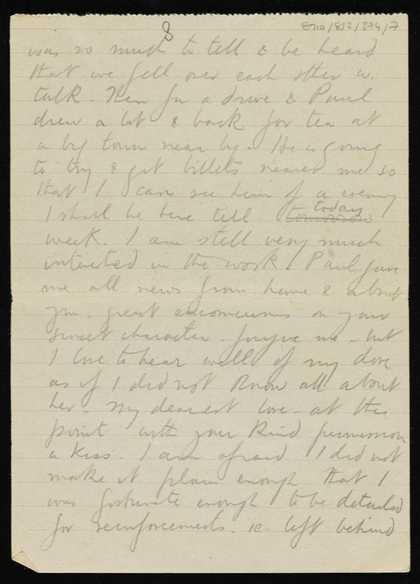 8
was so much to tell & be heard
that we fell over each other in
talk. Then for a drive & Paul
drew a lot & back for tea at
a big town near by. He is going
to try & get billets nearer me so
that I can see him of a evening
I shall be here till tomorrow today
week. I am still very much
interested in the work. Paul gave
me all news from home & about
you. great encomiums on your
sweet character - forgive me - but
I love to hear well of my dove
as if I did not know all about
her - my dearest love - at this
point with your kind permission
a kiss. I am afraid I did not
make it plain enough that I
was fortunate enough to be detailed
for reinforcements - ie left behind